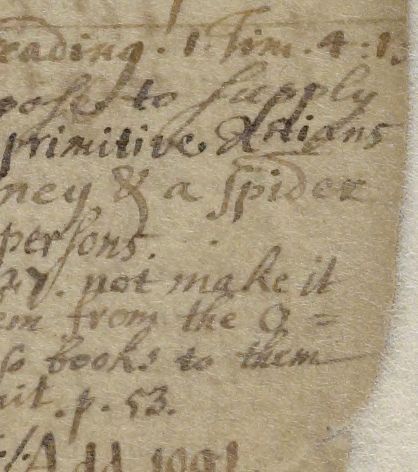 eading. 1 Tim. 4. 13
poses to supply
primitive. Actions
ney & a spider
persons.
27. not make it
em from the O=
so books to them
it. p. 53.
Add. 1091.